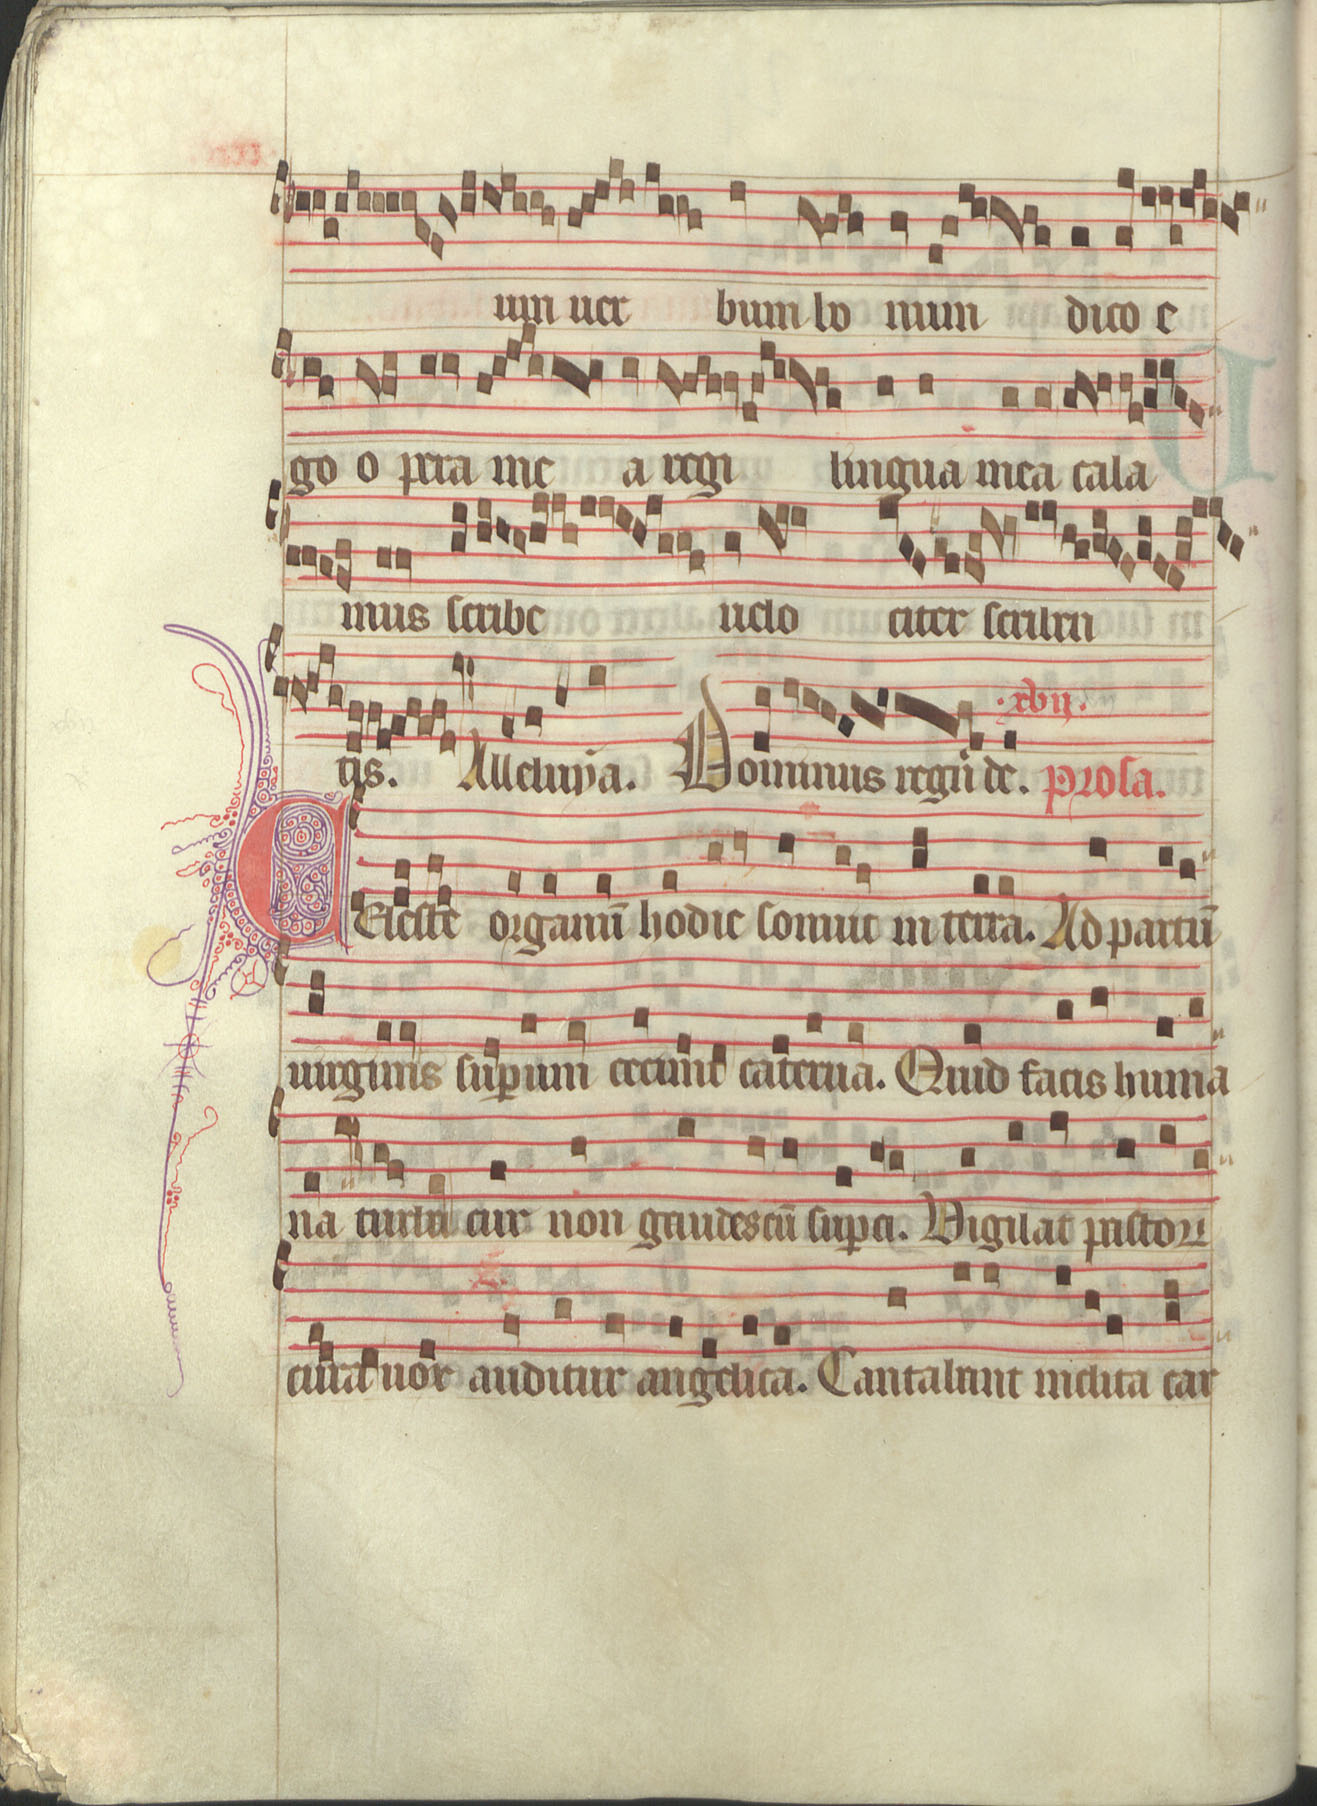 um uer bum bo num dico e
go o pera me a regi lingua mea cala
mus scribe uelo citer scriben
tis. Alleluya. Dominus regū de. xvij. Prosa.
Celeste organū hodie sonuit in terra. Ad partū
uirginis supum cecinit caterua. Quid facis huma
na turba cur non gaudes cū supa. Vigilat pastoꝝ
cura uox auditur angelica. Cantabant inclita car